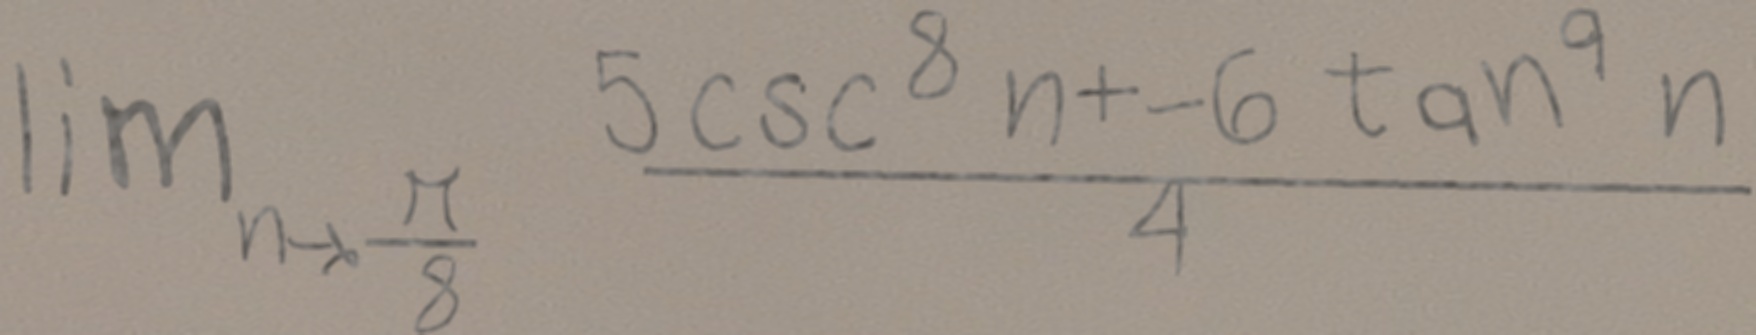 \lim_{n \to \frac{\pi}{8}} \frac{5 \csc^8 n + -6 \tan^9 n}{4}